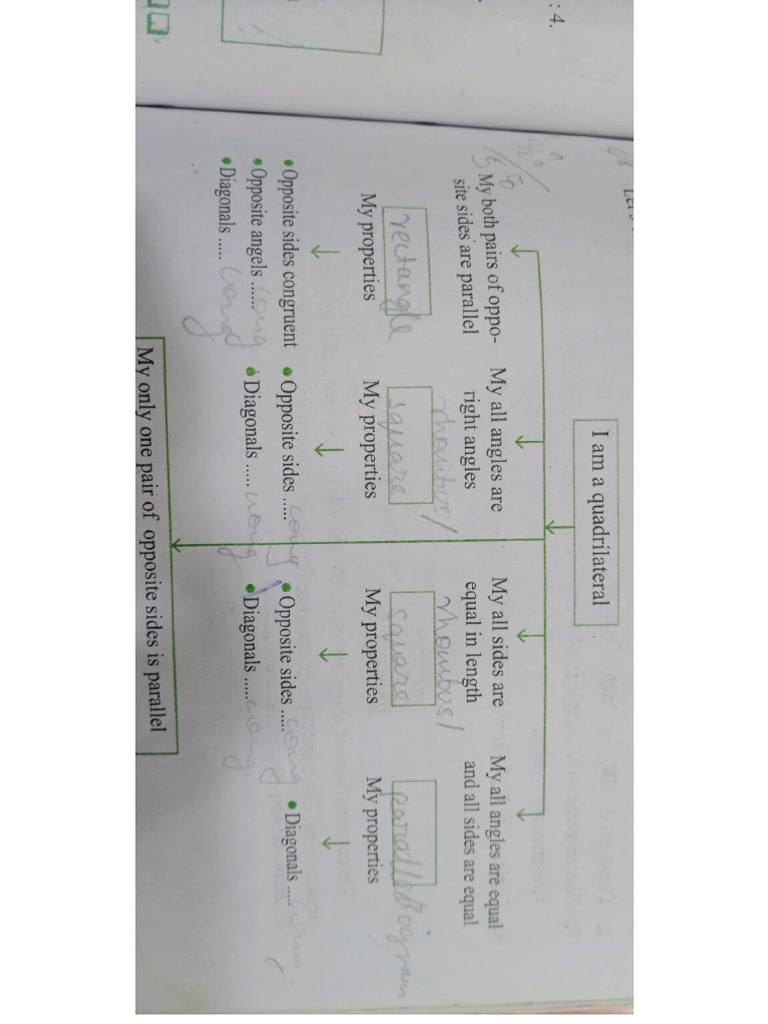 : 4.
I am a quadrilateral
My both pairs of oppo-
site sides are parallel
My all angles are
right angles
My all sides are
equal in length
My all angles are equal
and all sides are equal
rectangle
rhombus/
square
rhombus/
square
parallelogram
My properties
My properties
My properties
My properties
• Opposite sides congruent
• Opposite angels ...... cong
• Diagonals ..... cong
• Opposite sides ..... cong
• Diagonals ..... cong
• Opposite sides ..... cong
• Diagonals ..... cong
• Diagonals ..... cong
My only one pair of opposite sides is parallel